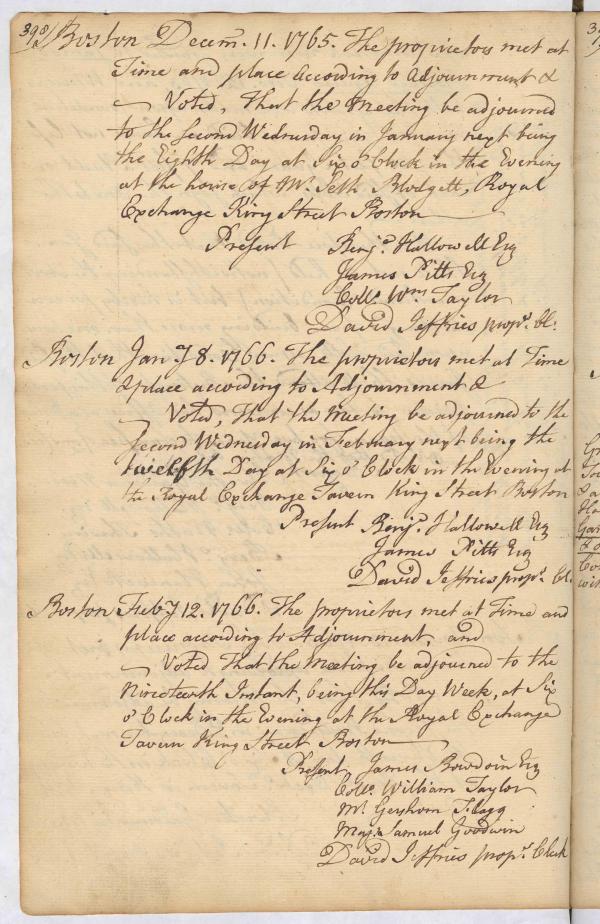 398/ Boston Decem. 11. 1765. The proprietors met at
Time and place according to Adjournment &
Voted, That the Meeting be adjourned
to the Second Wednesday in January next being
the Eighth Day at Six o'Clock in the Evening
at the house of Mr. Seth Blodgett, Royal
Exchange King Street Boston
Present Benja. Hallowell Esq
James Pitts Esq
Collo. Wm. Taylor
David Jeffries propr. Cl.
Boston Jany. 8. 1766. The proprietors met at Time
& place according to Adjournment &
Voted, That the Meeting be adjourned to the
Second Wednesday in February next being the
twelfth Day at Six o'Clock in the Evening at
the Royal Exchange Tavern King Street Boston
Present Benja. Hallowell Esq
James Pitts Esq
David Jeffries propr. Cl.
Boston Feby 12. 1766. The proprietors met at Time and
place according to Adjournment, and
Voted That the Meeting be adjourned to the
Nineteenth Instant, being this Day Week, at Six
o'Clock in the Evening at the Royal Exchange
Tavern King Street Boston
Present, James Bowdoin Esq
Collo. William Taylor
Mr. Gershom Flagg
Majr. Samuel Goodwin
David Jeffries propr. Clerk